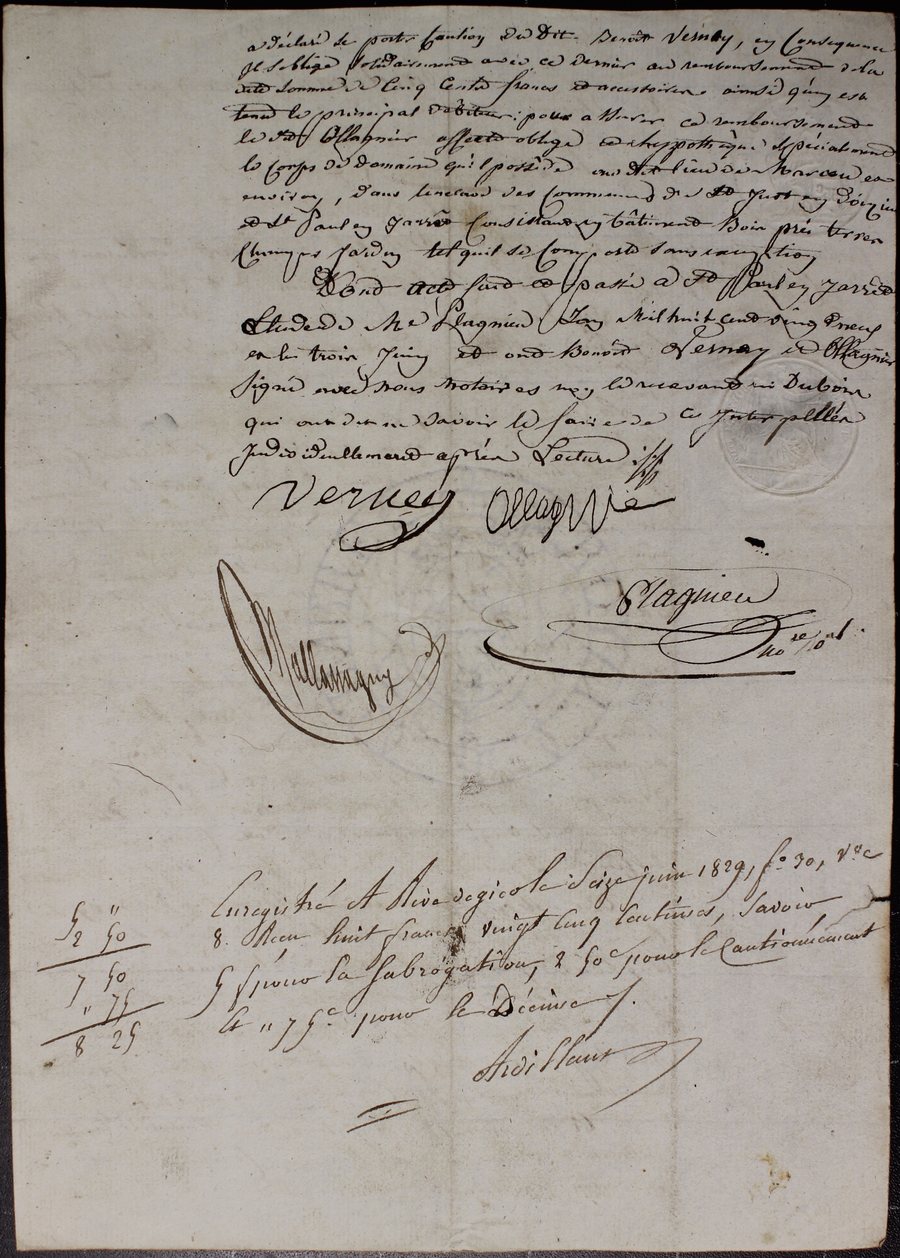 a déclaré se porter Caution du Dit Benoît Verney, en Conséquence
Il s'oblige solidairement avec ce dernier au remboursement de la
dite somme de Cinq Cents francs et accessoires ainsi qu'en est
tenu le principal débiteur: pour assurer ce remboursement
le dit Ollagnier affecte oblige et hypothèque spécialement
le Corps de domaine qu'il possède au dit lieu de Marcou et
environ, dans l'enclave des Communes de St Just en Doizieu
et St Paul en Jarrêt Consistant en bâtiment Bois prés terres
Champs Jardin tel qu'il se Comporte sans exception
Dont acte fait et passé à St Paul en Jarrêt
Etude de Me Plagnieu L'an Mil huit cent vingt neuf
et le trois Juin et ont Benoît Verney et Ollagnier
signé avec nous notaires non le recevant ni Dubois
qui ont dit ne savoir le faire de ce Interpellés
Individuellement après Lecture
Verney Ollagnie
Plagnieu
nore roal
Mallassagny
Enregistré A Rive de gier le Seize juin 1829, fo 30, vo c
8. Reçu huit francs vingt cinq Centimes, Savoir
5 f pour la Subrogation, 2 50c pour le Cautionnement
Et " 75c pour le Décime
Ardillaux
5 "
2 50
7 50
" 75
8 25